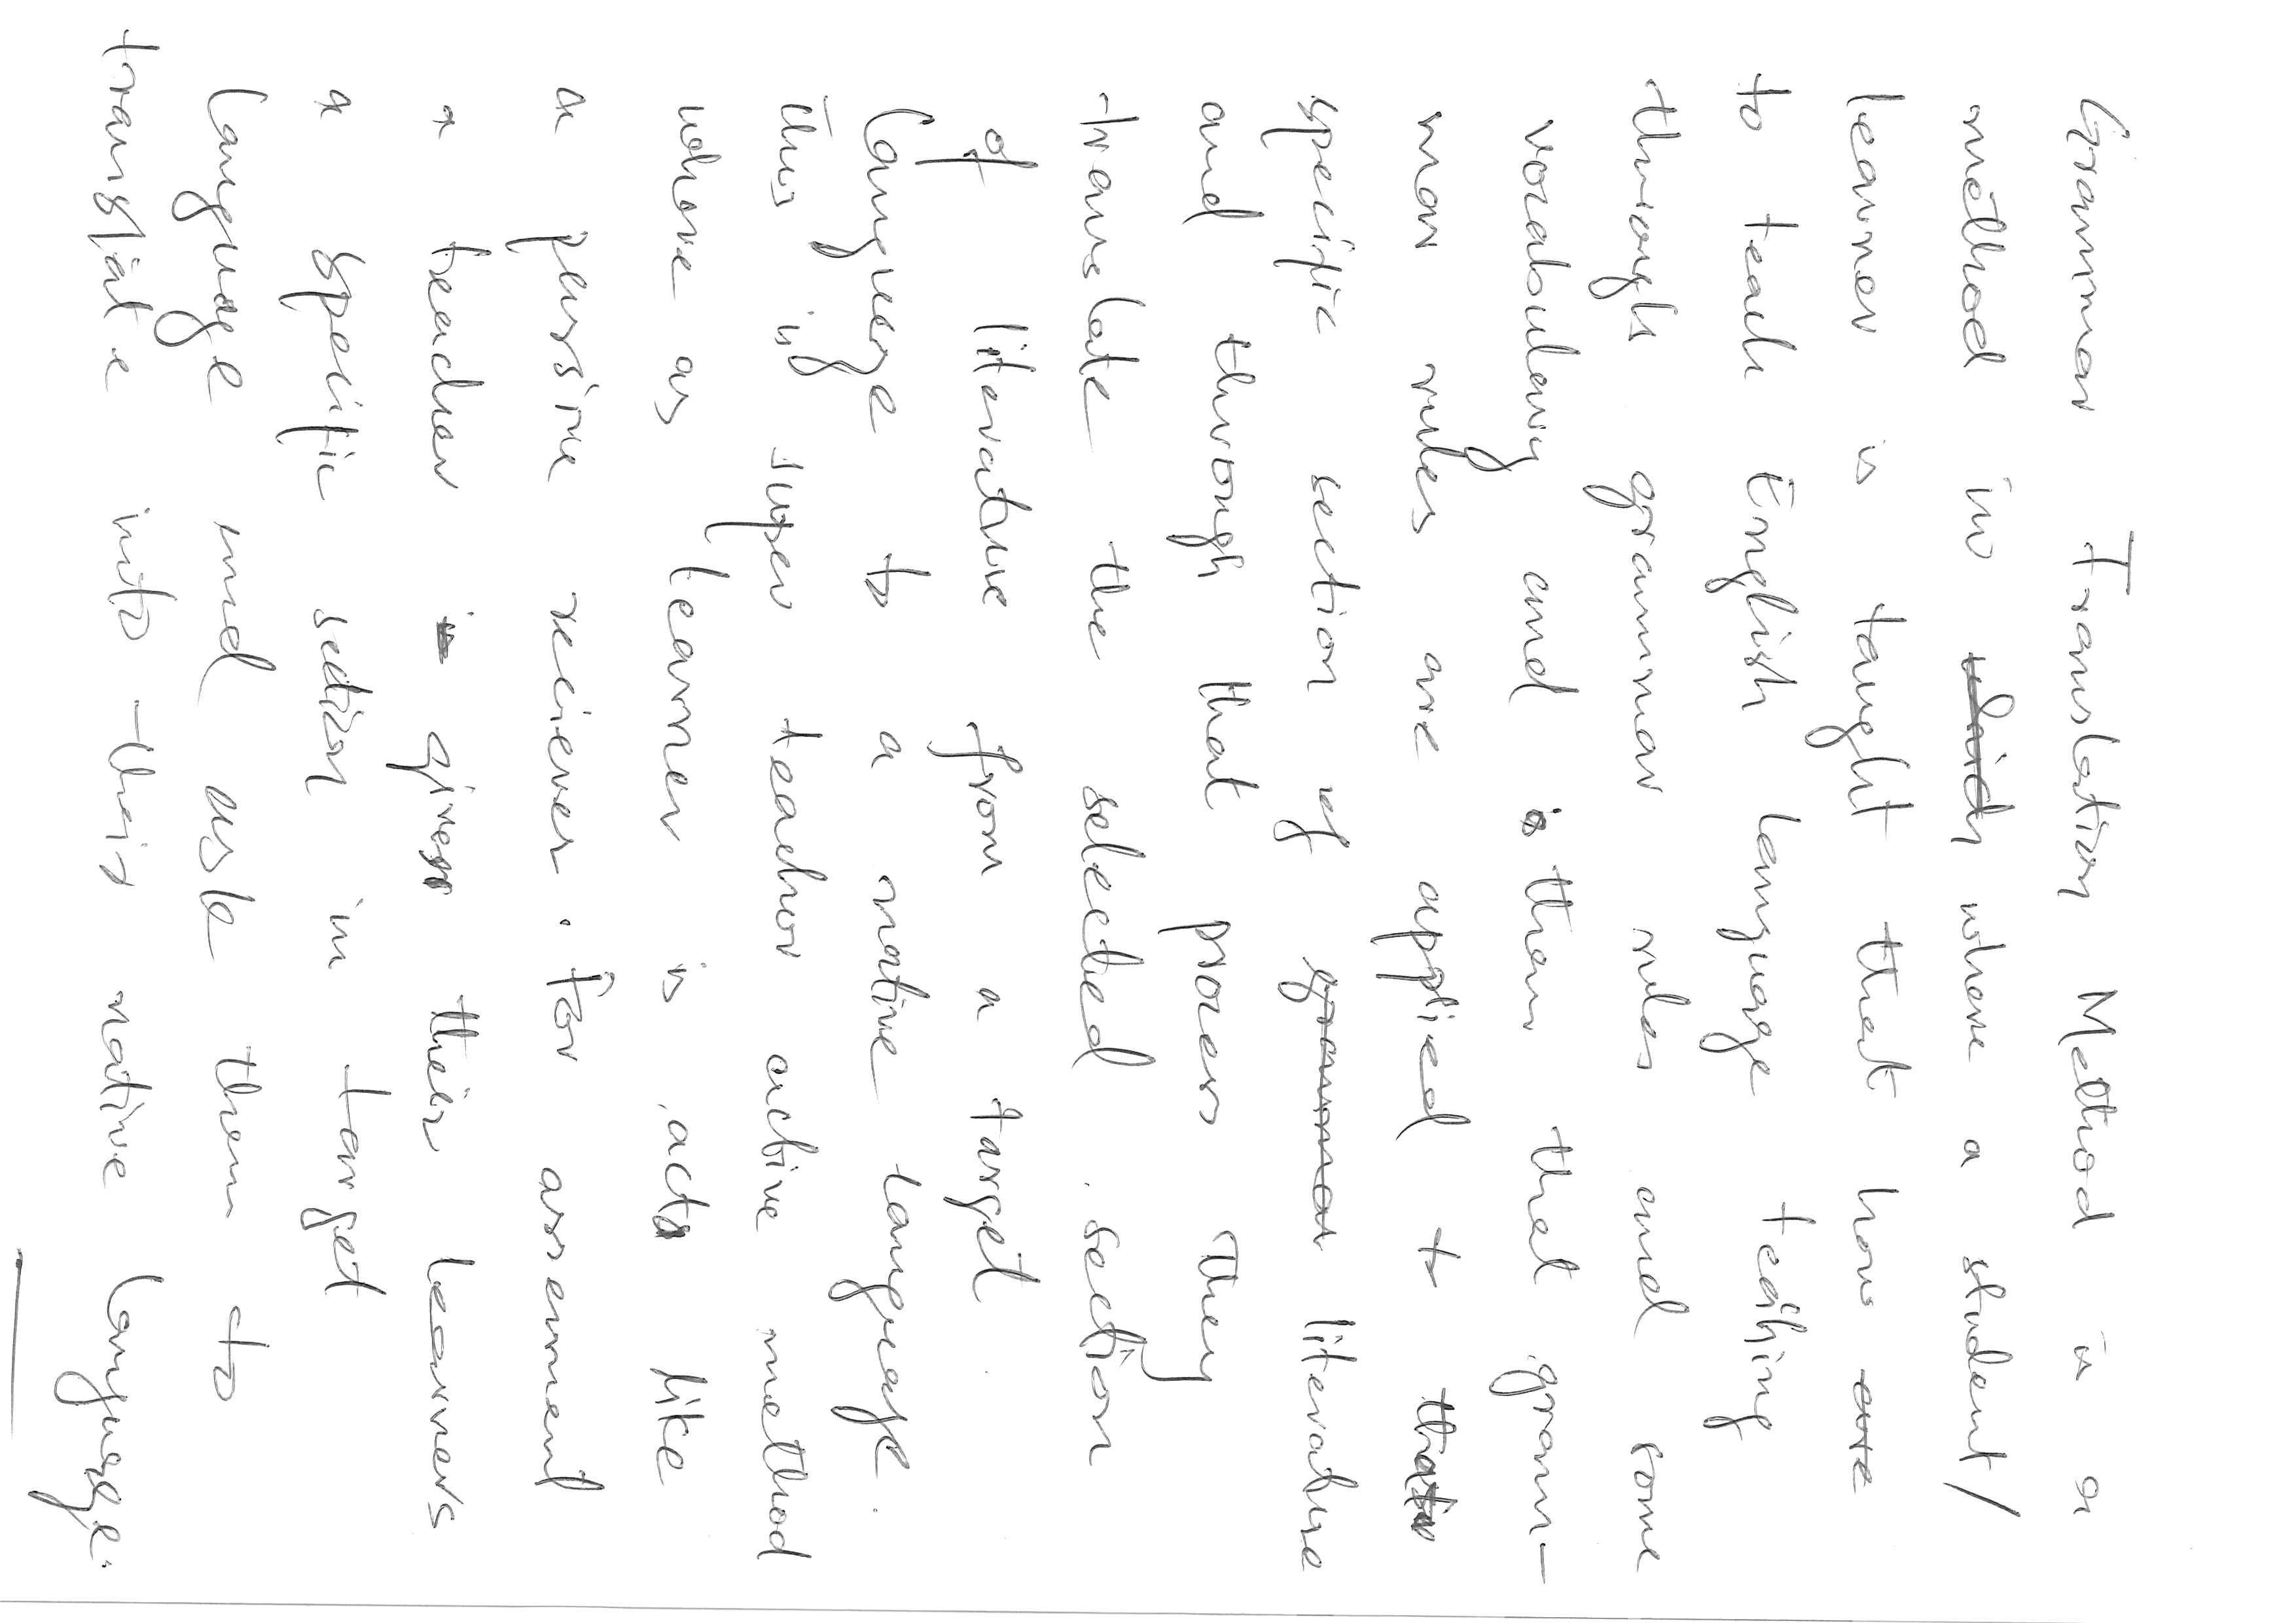 Grammar Translation Method is a
method in which where a student/
learner is taught that how are
to teach English language teaching
through grammar rules and some
vocabulary and then that gram-
mar rules are applied to
specific section of grammar literature
and through that process they
translate the selected section
of literature from a target
language to a native language.
This is super teacher active method
where as learner is acts like
a passive reciever. For assessment
a teacher is gives their learners
a specific section in target
language and ask them to
translate into their native language.